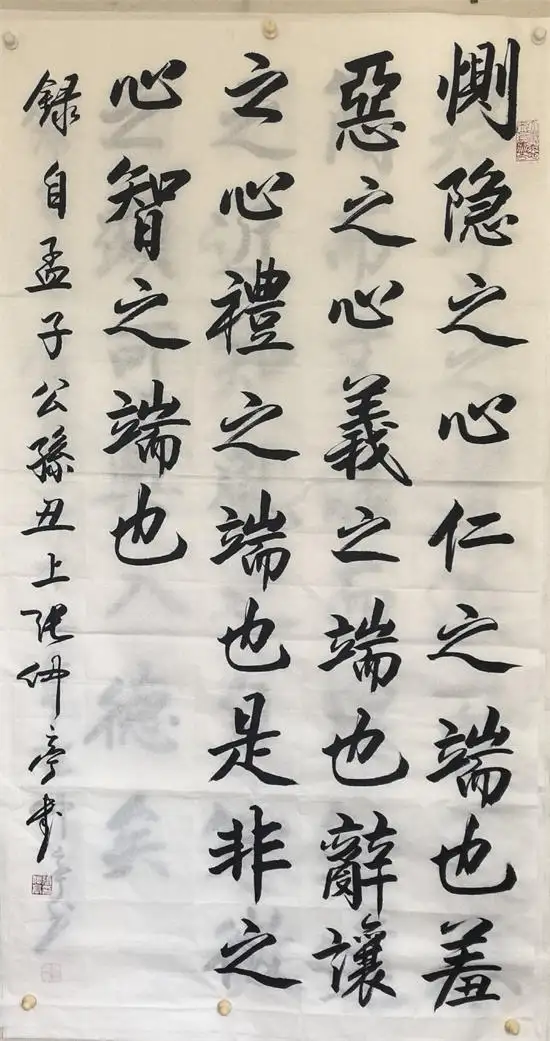 惻隐之心仁之端也羞
惡之心義之端也辭讓
之心禮之端也是非之
心智之端也
録自孟子公孫丑上張仲亭書